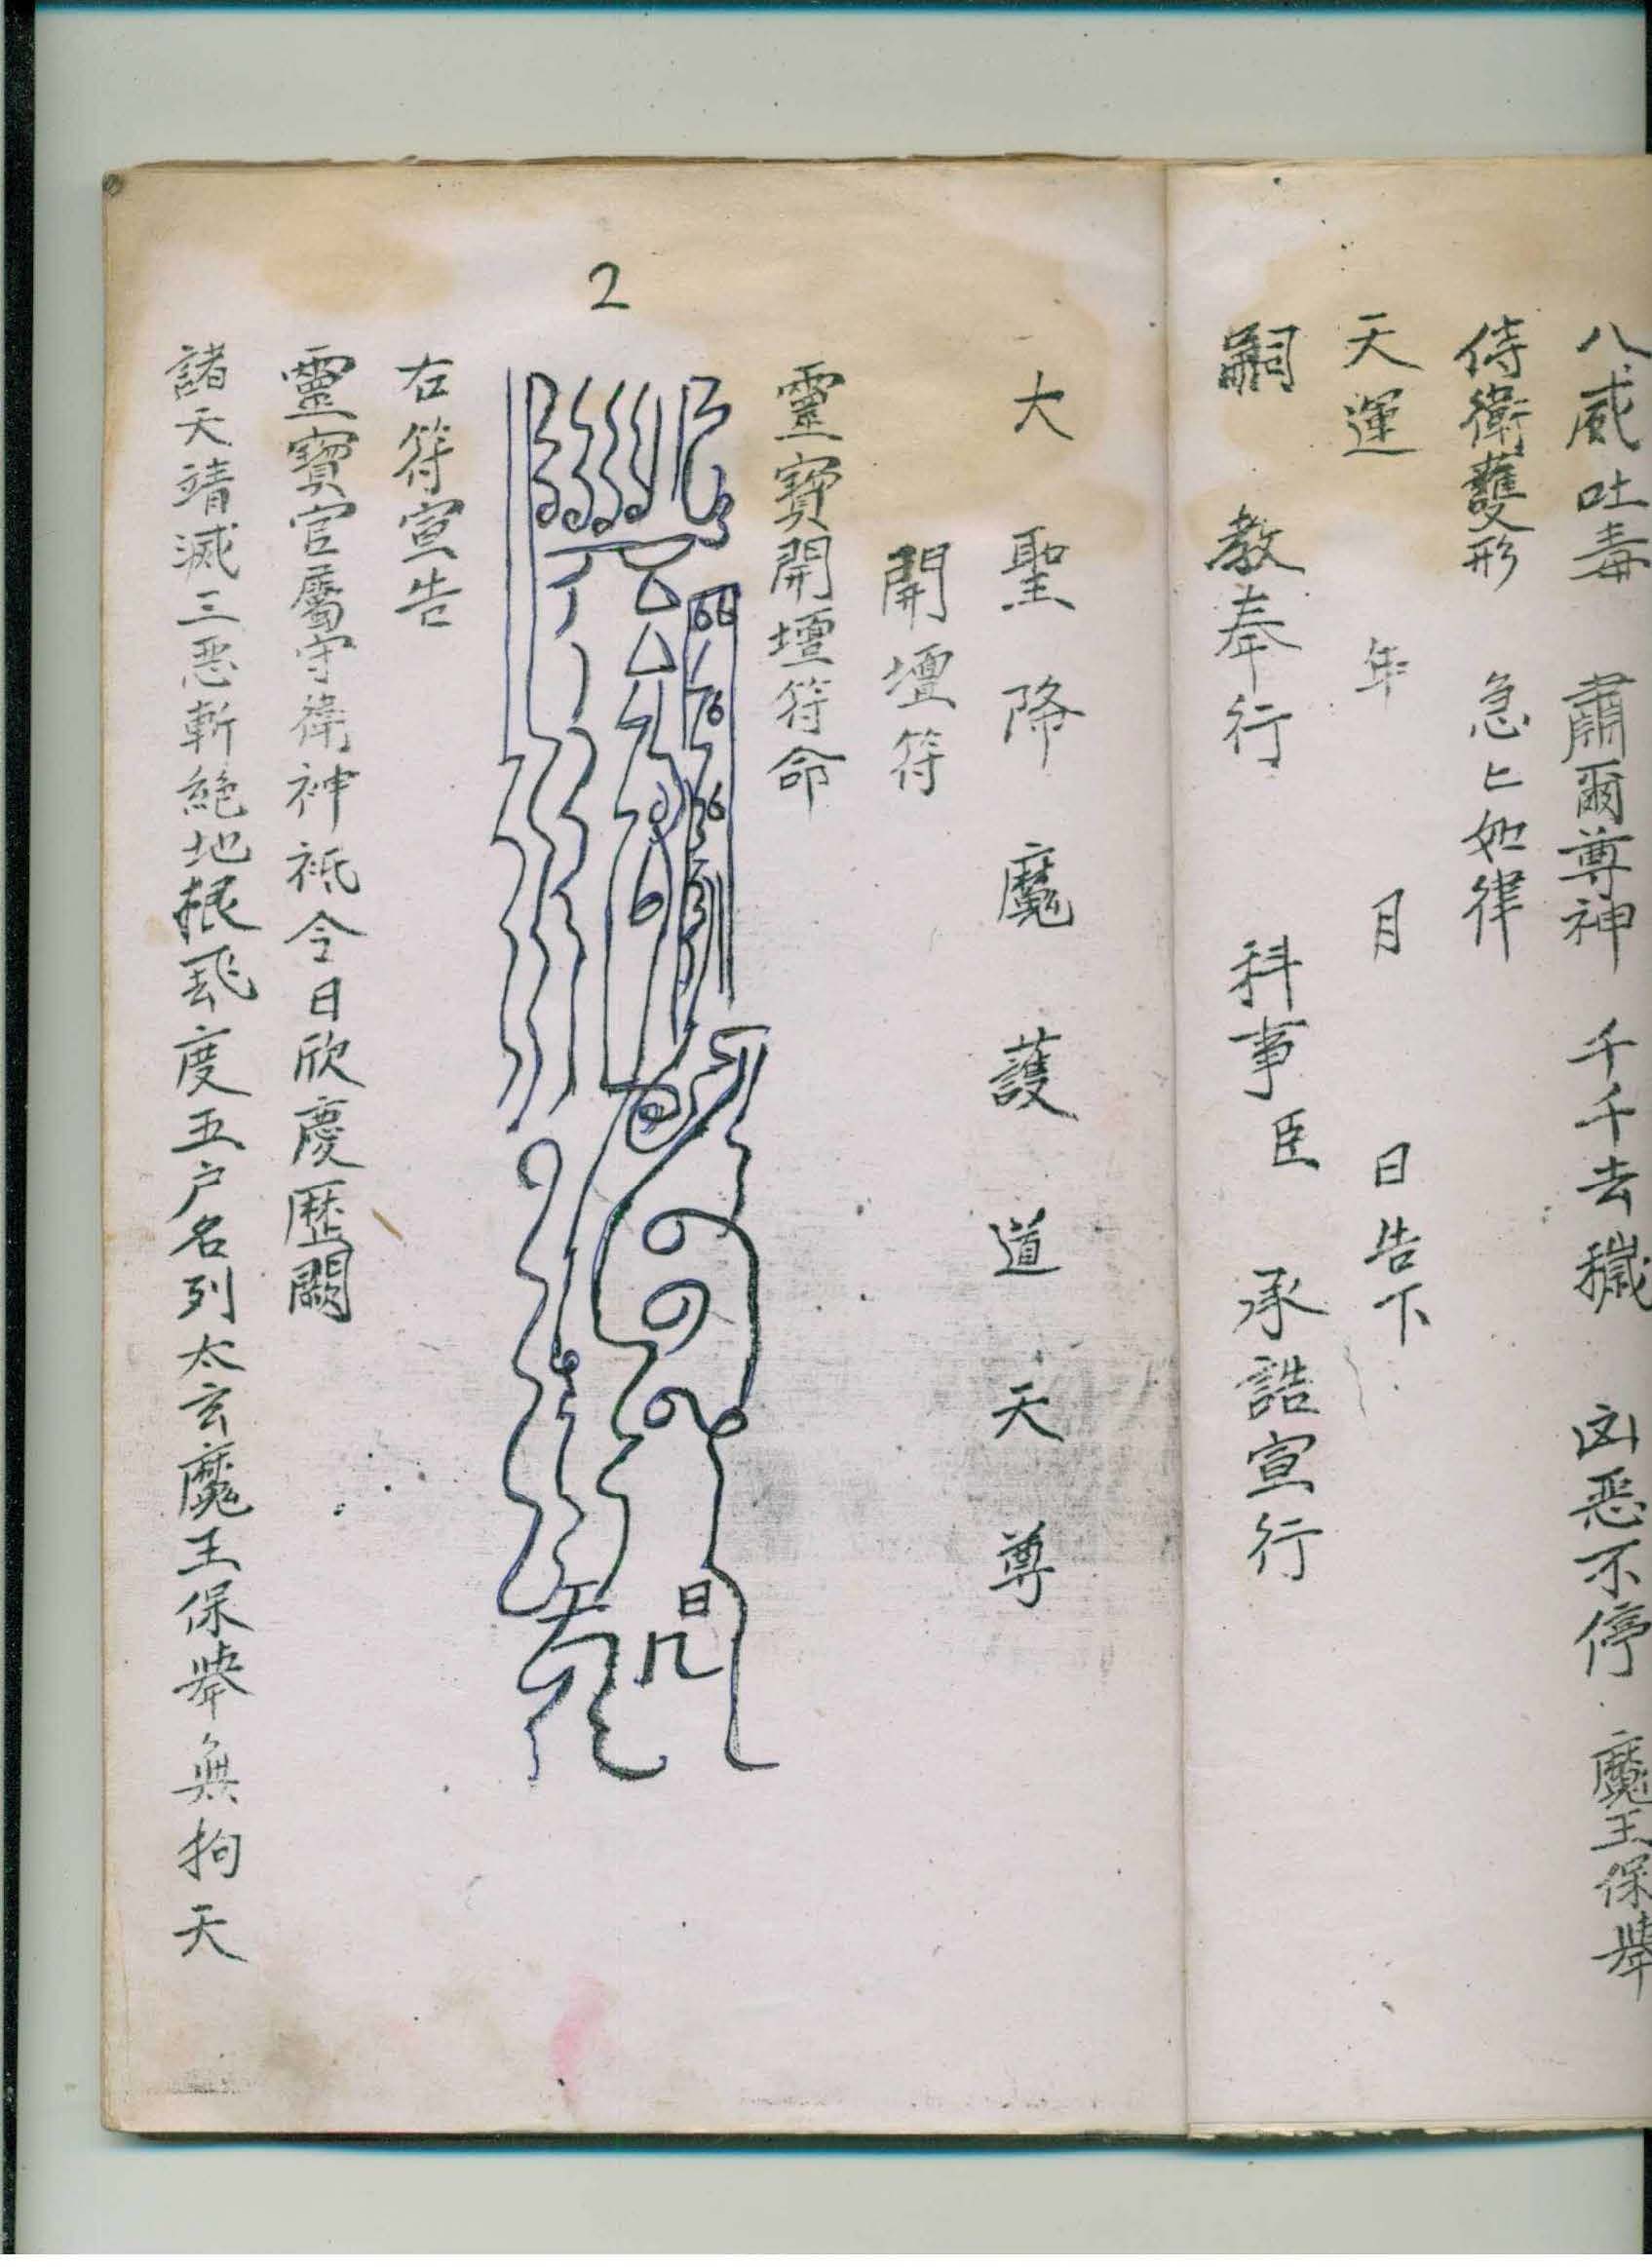 八威吐毒 肅爾尊神 千千去穢 凶惡不停 魔王保舉
侍衛護形 急匕如律
天運 年 月 日告下
嗣 教奉行 科事臣 承誥宣行
大聖降魔護道天尊
開壇符
靈寶開壇符命
2
右符宣告
靈寶官屬守衛神祇令日欣慶歷闕
諸天靖滅三惡斬絕地根飛度五户名列太玄魔王保舉無拘天